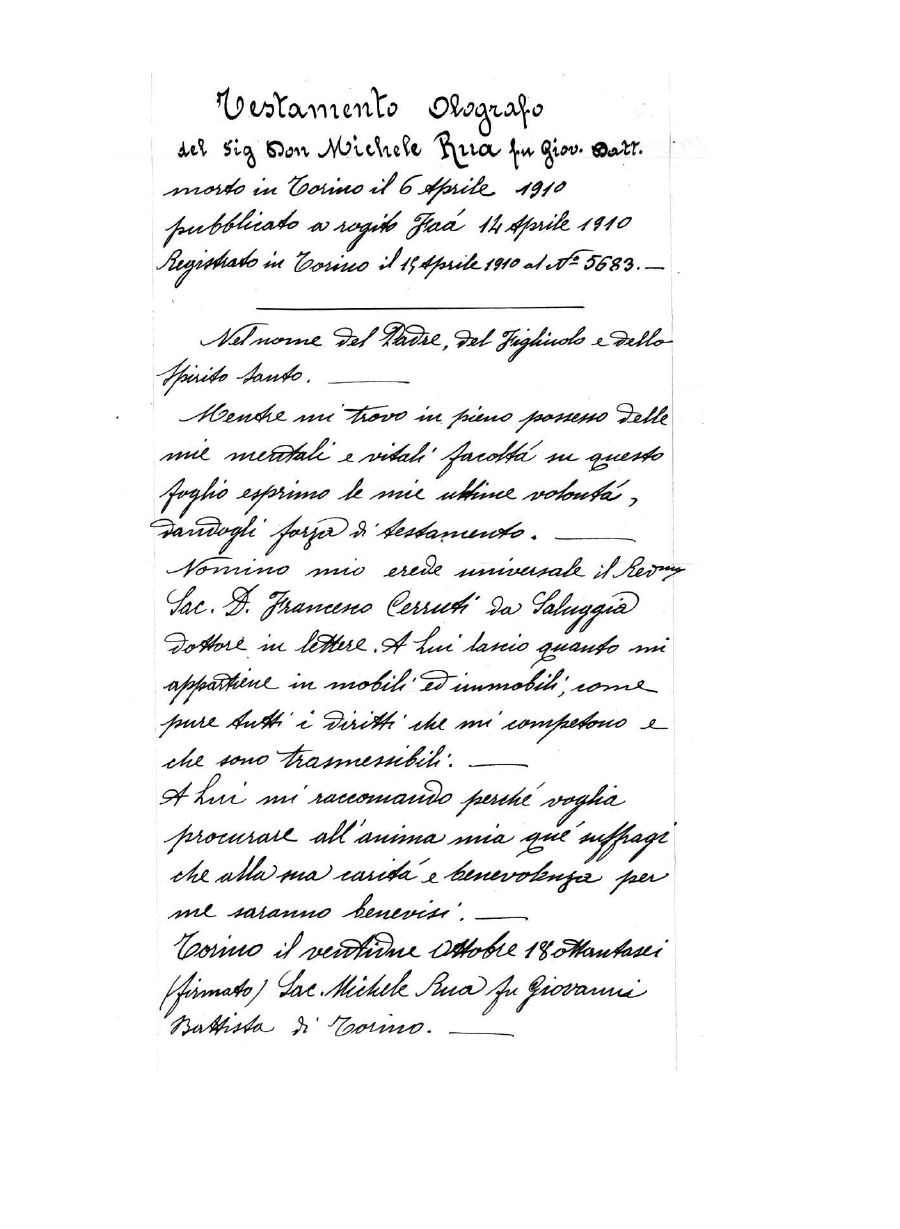 Testamento Olografo
del Sig Don Michele Rua fu Giov. Batt.
morto in Torino il 6 Aprile 1910
pubblicato a rogito Faá 14 Aprile 1910
Registrato in Torino il 15 Aprile 1910 al Nº 5683. —
Nel nome del Padre, del Figliuolo e dello
Spirito Santo. —
Mentre mi trovo in pieno possesso delle
mie mentali e vitali facoltá su questo
foglio esprimo le mie ultime volontá,
dandogli forza di testamento. —
Nomino mio erede universale il Revmo
Sac. D. Francesco Cerruti da Saluggia
dottore in lettere. A Lui lascio quanto mi
appartiene in mobili ed immobili, come
pure tutti i diritti che mi competono e
che sono trasmessibili. —
A Lui mi raccomando perché voglia
procurare all'anima mia qué suffragi
che alla sua caritá e benevolenza per
me saranno benevisi. —
Torino il ventidue Ottobre 18ottantasei
(firmato) Sac. Michele Rua fu Giovanni
Battista di Torino. —